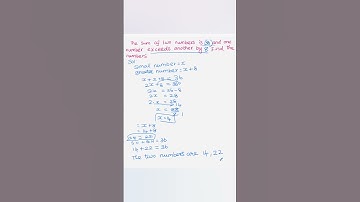 The sum of two numbers is 36 and one
number exceeds another by 8 Find the
numbers
Sol
small number = x
greater number = x + 8
x + x + 8 = 36
2x + 8 = 36
2x = 36 - 8
2x = 28
x = 14
= x + 8
14 + 22 = 36
The two numbers are 14, 22